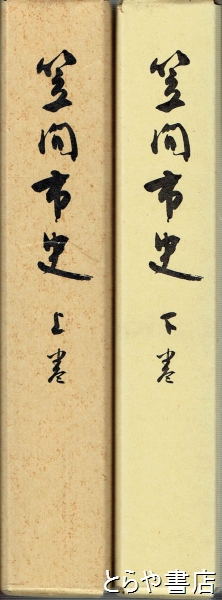 笠间市史
上巻
笠间市史
下巻
とらや書店